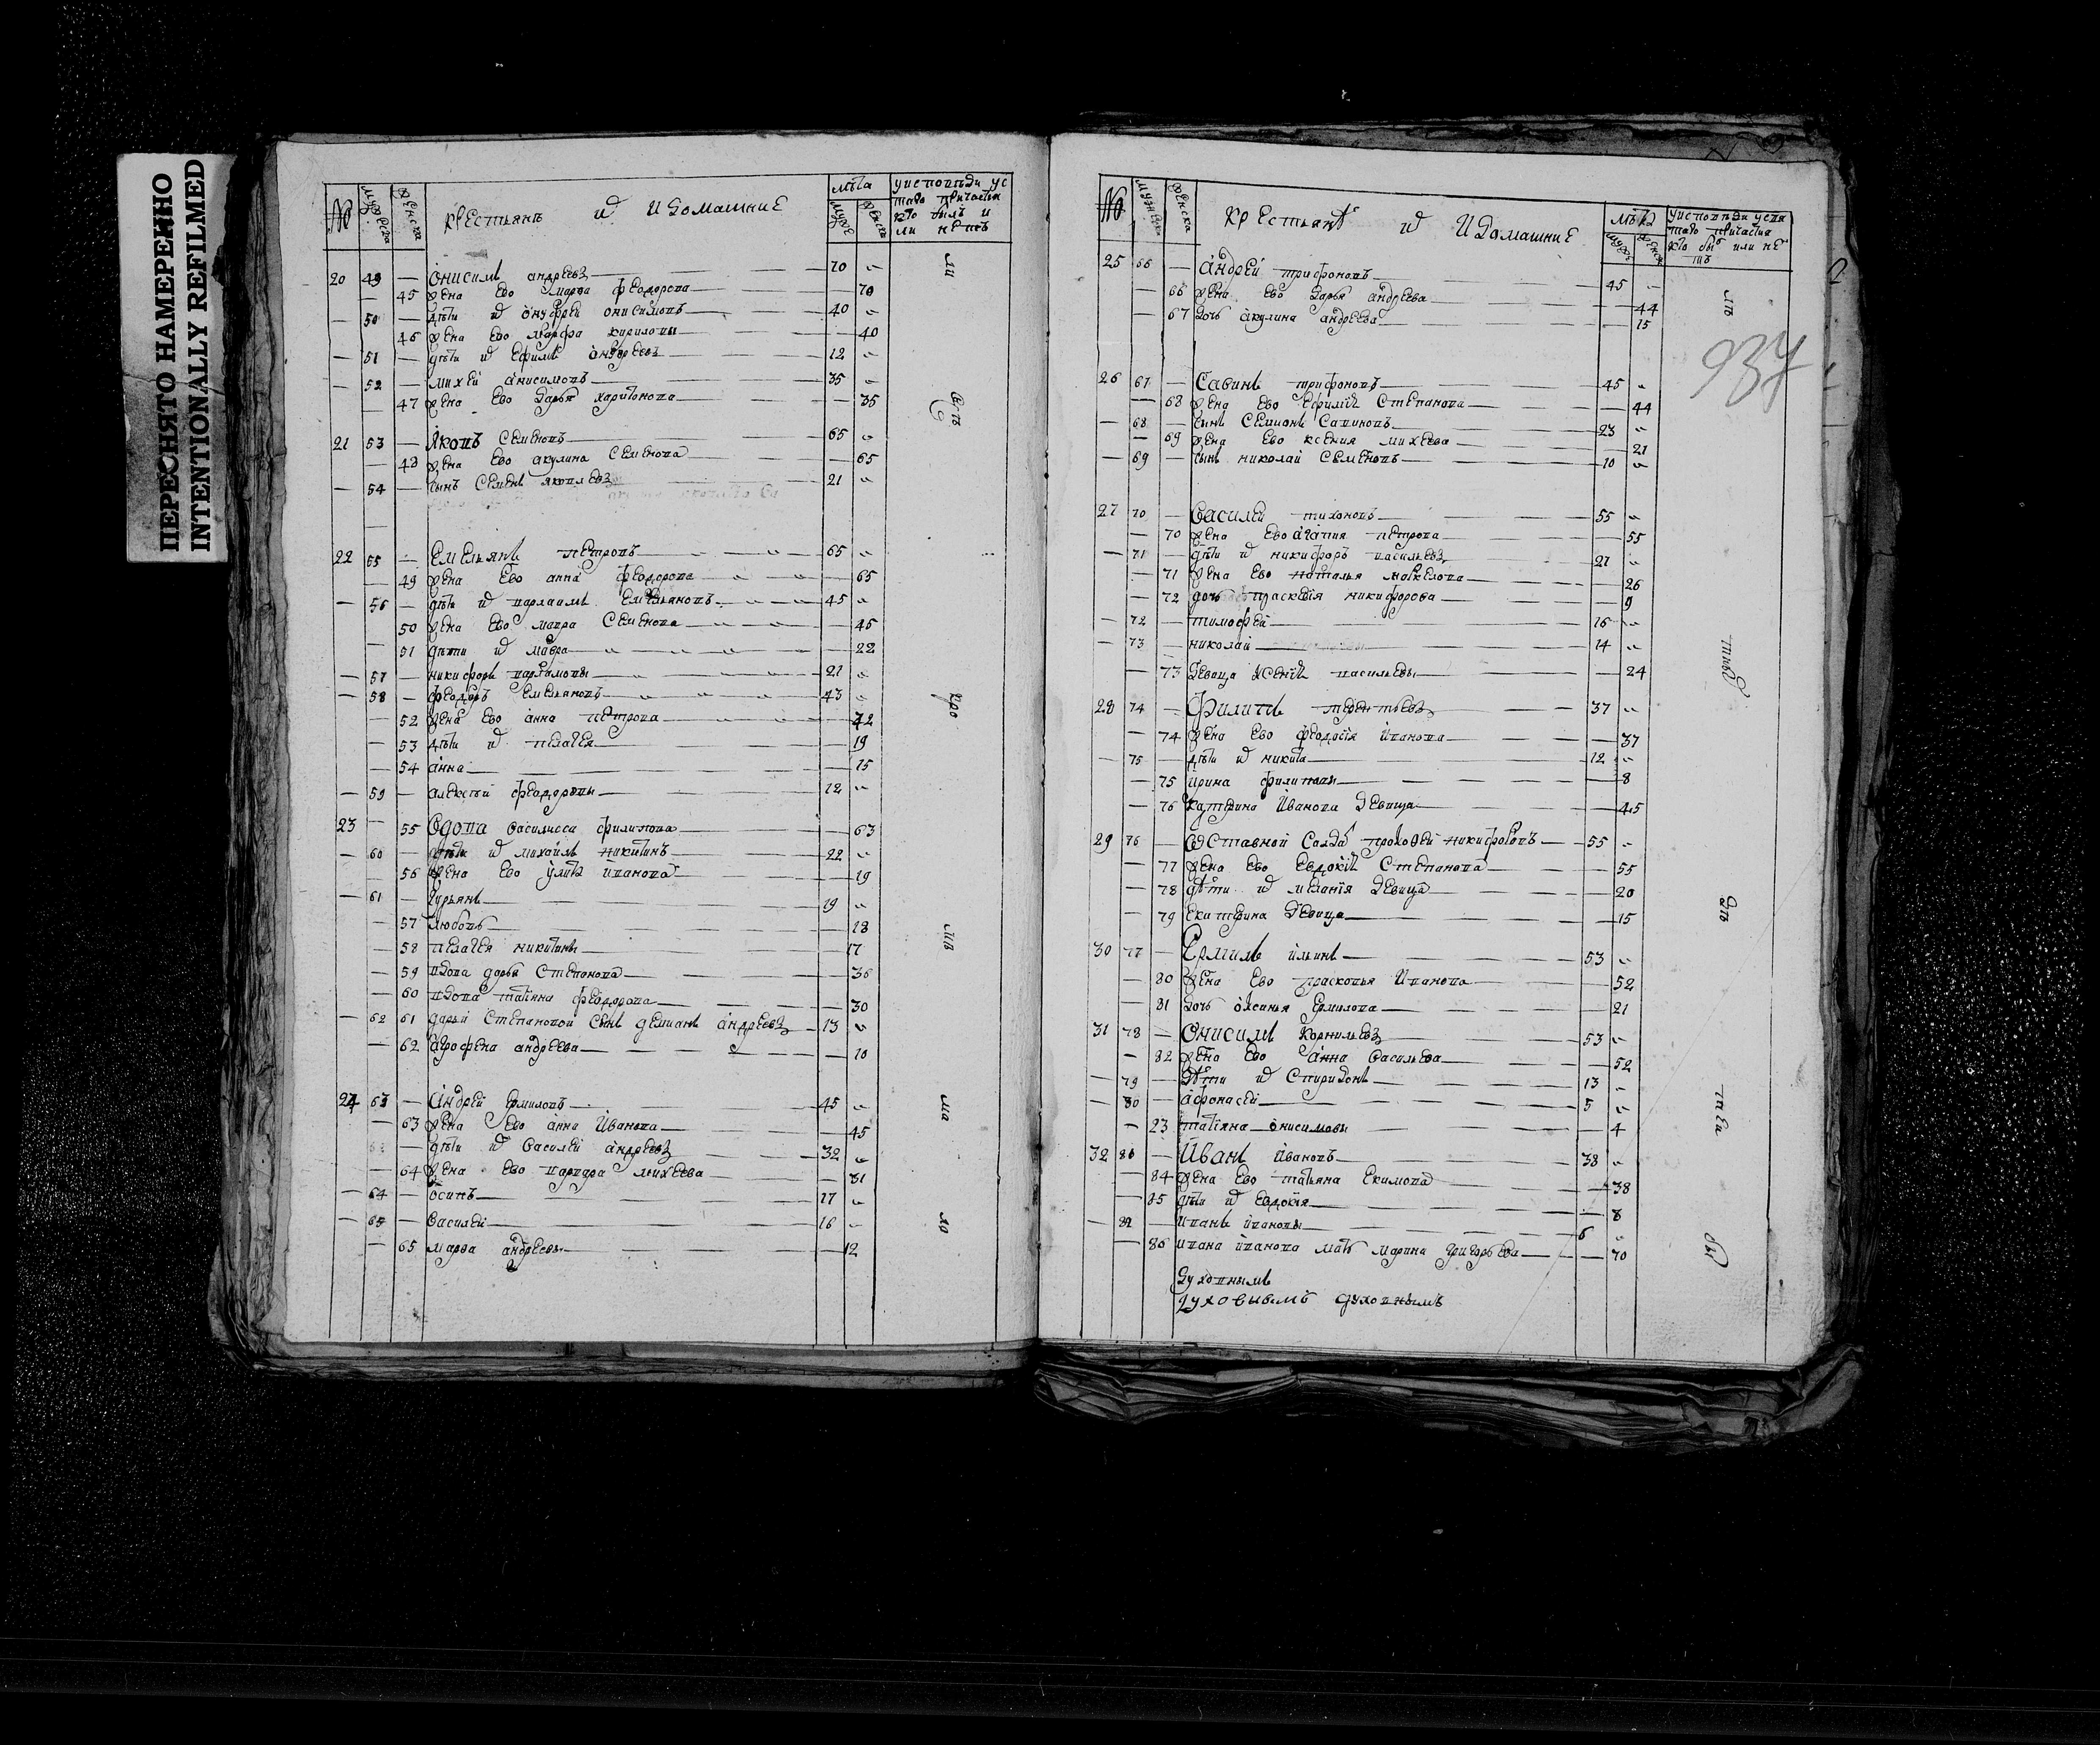 ПЕРЕСНЯТО НАМЕРЕННО
INTENTIONALLY REFILMED
№ мужеска женска крестьянъ и домашние лѣта мужс женска
20 49 — Онисимъ андреевъ 70 „
— 45 жена ево марѳа феодорова — 70
— 50 — дѣти их онуфрей онисимовъ 40 „
46 жена ево марфа кирилова — 40
— 51 — дѣти их ефимъ онуфреевъ 12 „
— 52 — михей анисимовъ 35 „
47 жена ево дарья харитонова — 35
21 53 — Яковъ Семеновъ 65 „
— 48 жена ево акулина Семенова — 65
— 54 — сынъ Семенъ яковлевъ 21 „
22 55 — Емельянъ петровъ 65 „
— 49 жена ево анна феодорова — 65
— 56 — дѣти их варламъ Емельяновъ 45 „
50 жена ево мавра Семенова — 45
— 51 дѣти их мавра — 22
— 57 — никифоръ варламовы 21 „
— 58 — феодоръ Емельяновъ 43 „
— 52 жена ево анна петрова — 42
— 53 дѣти их пелагея — 19
— 54 анна — 15
— 59 — алексѣй феодоровы 12 „
23 — 55 Вдова василисса филипова — 63
— 60 — дѣти их михайлъ никитинъ 22 „
— 56 жена ево улита иванова — 19
— 61 — гурьянъ 19 „
— 57 любовь — 18
— 58 пелагея никитины — 17
— 59 вдова дарья Степанова — 36
— 60 вдова татіана феодорова — 30
— 62 61 дарьи Степановой Сынъ демианъ андреевъ 13 „
— 62 агрофена андреева — 10
24 63 — Андрей ермиловъ 45 „
— 63 жена ево анна Иванова — 45
— дѣти их Василей андреевъ 32 „
— 64 жена ево варвара михеева — 31
— 64 — осипъ 17 „
— 65 — Василей 16 „
— 65 марѳа андреевы — 12
№ мужеска женска крестьянъ и домашние лѣта
25 66 — Андрей трифоновъ 45 „
— 66 жена ево дарья андреева — 44
— 67 дочь акулина андреева — 15
937
26 67 — Савинъ трифоновъ 45 „
— 68 жена ево ефимія Степанова — 44
— 68 — сынъ Семионъ Савиновъ 23 „
— 69 жена ево ксения михеева — 21
— 69 — сынъ николай Семеновъ 10 „
27 70 — Василей тихоновъ 55 „
— 70 жена ево агапия петрова — 55
— 71 — дѣти их никифоръ васильевъ 27 „
— 71 жена ево наталья маркелова — 26
— 72 дочь прасковія никифорова — 9
— 72 — тимофей 16 „
— 73 — николай 14 „
— 73 девица Ксенія васильевы — 24
28 74 — Филипъ терентьевъ 37 „
— 74 жена ево феодосія иванова — 37
— 75 — дѣти их никита 12 „
— 75 ирина филиповы — 8
— 76 катерина Иванова девица — 45
29 76 — Отставной Салдаъ прокофей никифоровъ 55 „
— 77 жена ево евдокія Степанова — 55
— 78 дѣти их меланія девица — 20
— 79 екатерина девица — 15
30 77 — Ермилъ ильинъ 53 „
— 80 жена ево прасковья Иванова — 52
— 81 дочь оксинья Ермилова — 21
31 78 — Онисимъ корнильевъ 53 „
— 82 жена ево анна Васильева — 52
— 79 — дѣти их Спиридонъ 13 „
— 80 — афонасей 5 „
— 23 татіяна онисимовы — 4
32 80 — Иванъ Ивановъ 38 „
— 84 жена ево татьяна Екимова — 38
— 85 дѣти их евдокія — 8
— 82 — иванъ ивановы 6 „
— 86 ивана иванова мать марина григорьева — 70
духовнымъ
духовнымъ духовнымъ